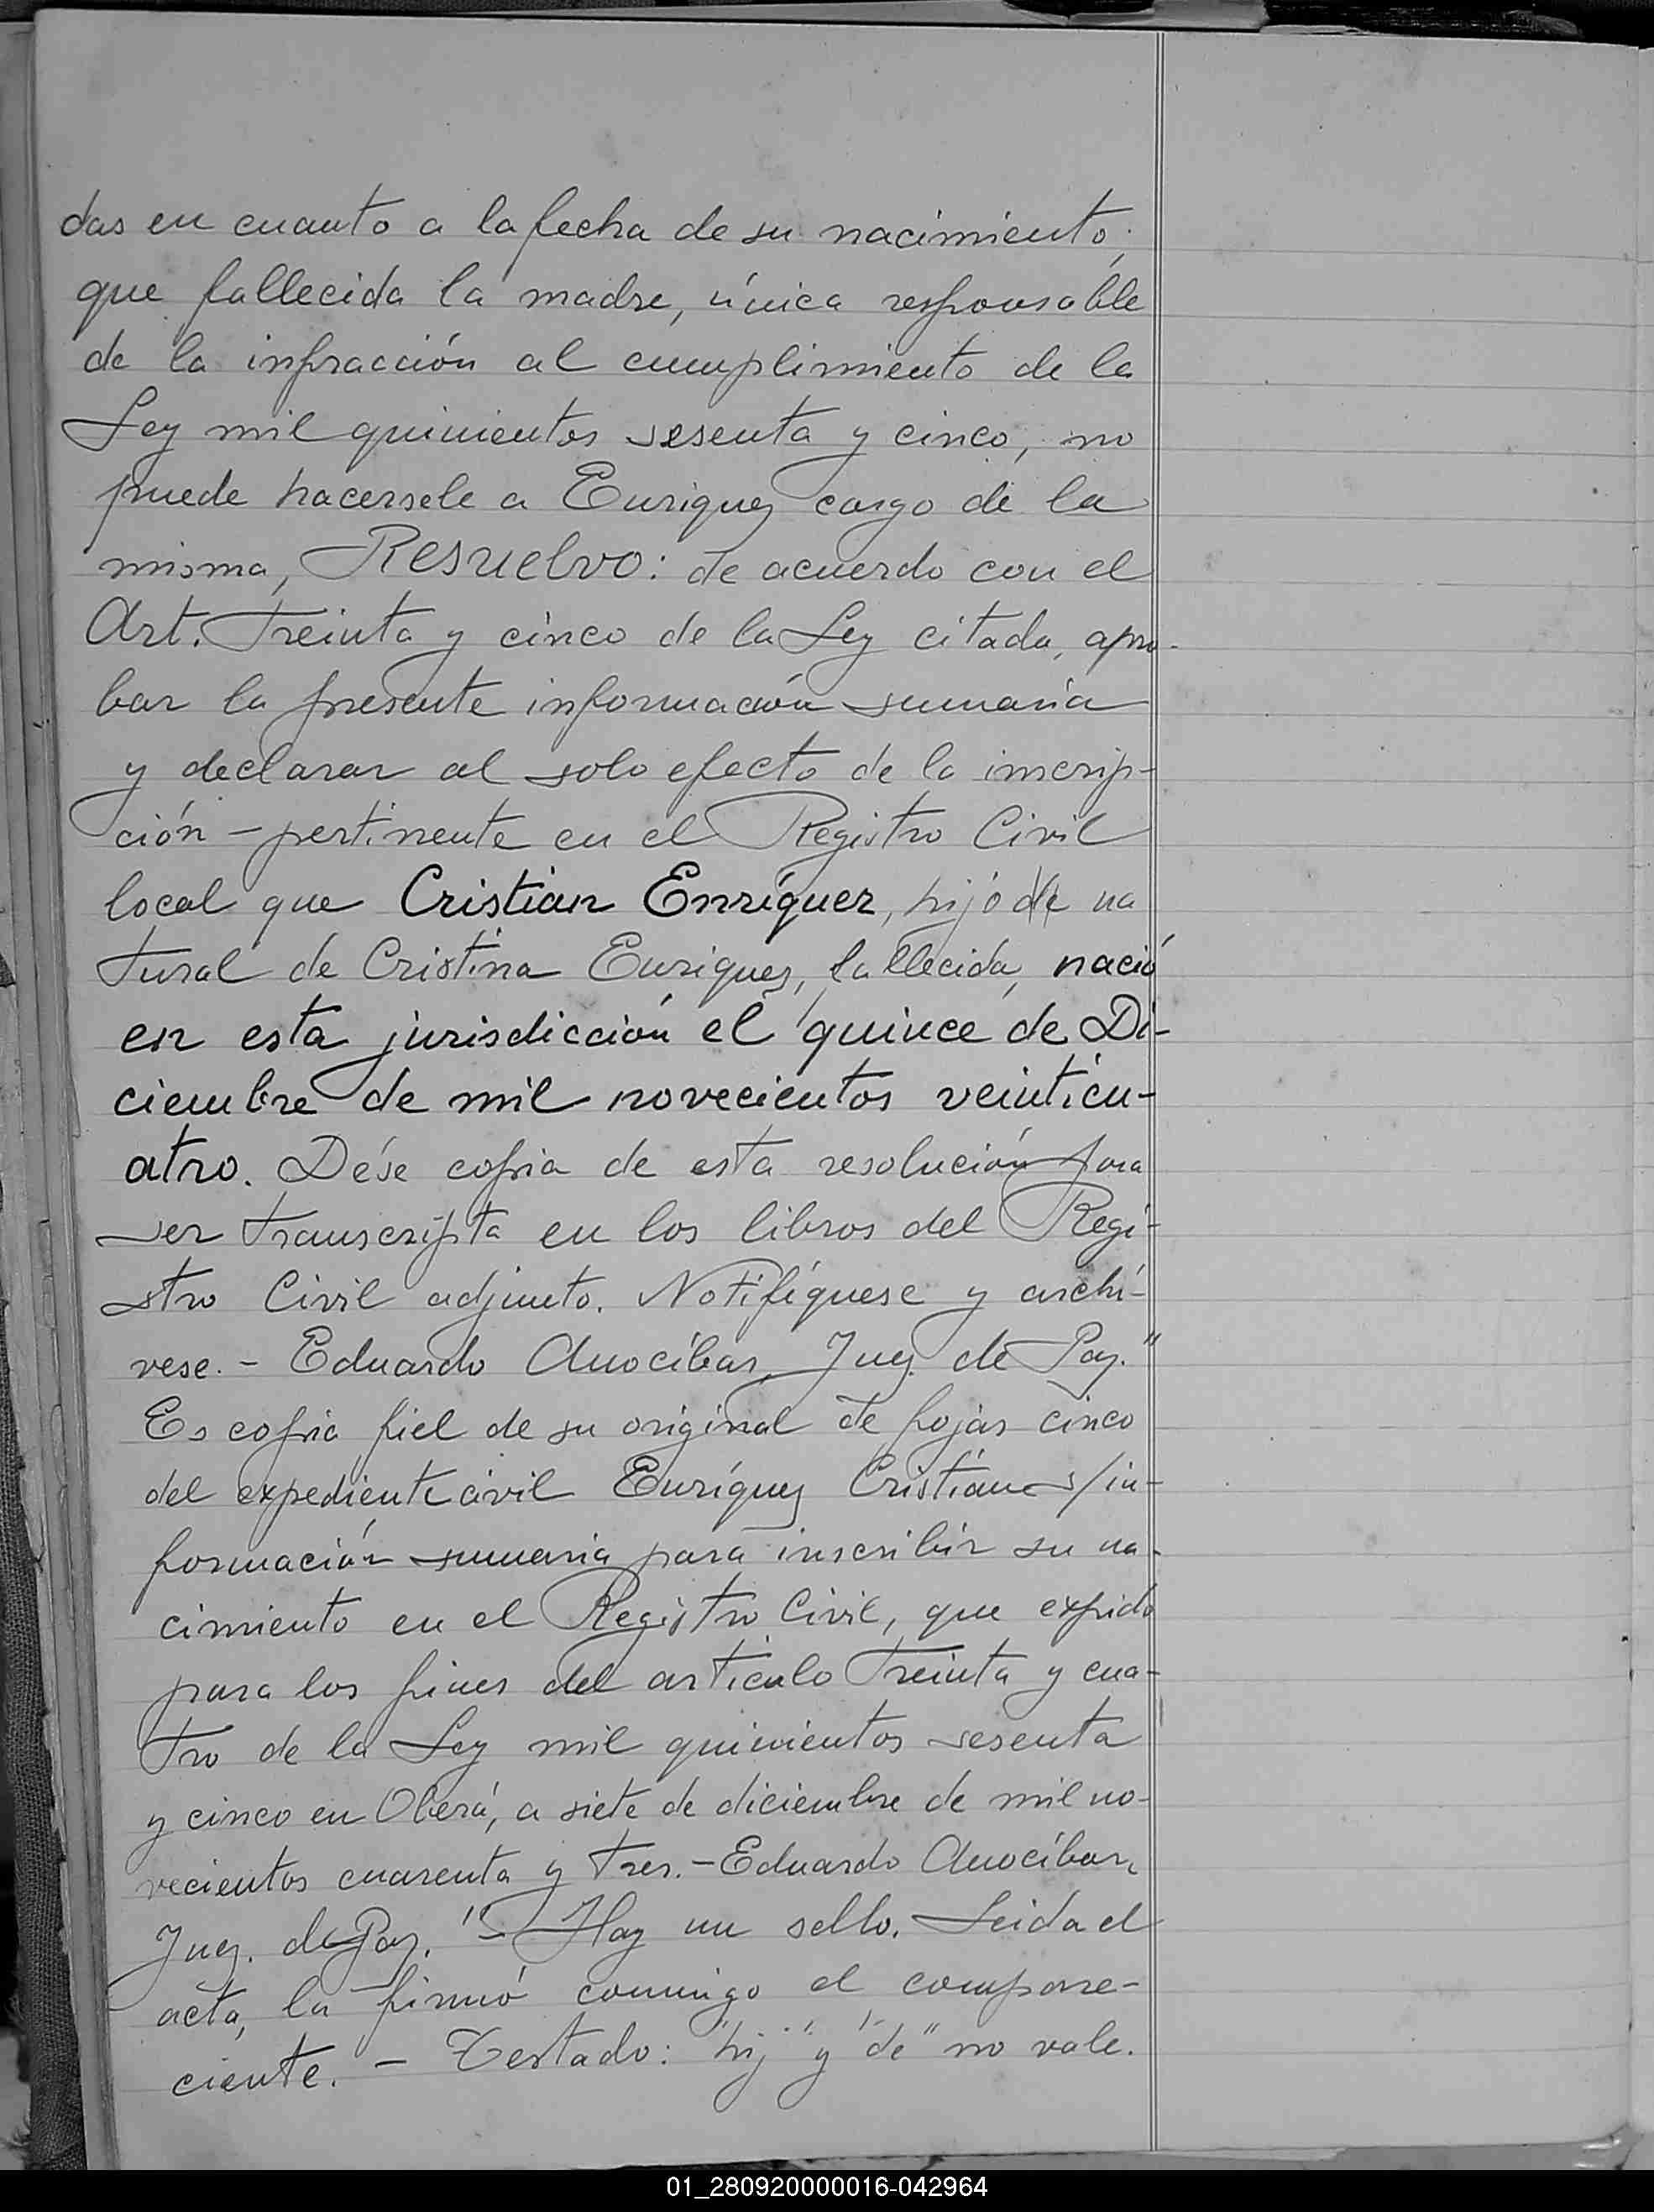 das en cuanto a la fecha de su nacimiento;
que fallecida la madre, única responsable
de la infracción al cumplimiento de la
Ley mil quinientos sesenta y cinco, no
puede hacersele a Enriquez cargo de la
misma, Resuelvo: de acuerdo con el
Art. Treinta y cinco de la Ley citada, apro-
bar la presente información sumaria
y declarar al solo efecto de la inscrip-
ción - pertinente en el Registro Civil
local que Cristian Enríquez, hijo de na
tural de Cristina Enriquez, fallecida, nació
en esta jurisdicción el quince de Di-
ciembre de mil novecientos veinticu-
atro. Dése copia de esta resolución para
ser transcripta en los libros del Regi-
stro Civil adjunto. Notifíquese y archí-
vese. - Eduardo Anocíbar, Juez de Paz."
Es copia fiel de su original de fojas cinco
del expediente civil Enríquez Cristian s/in-
formación sumaria para inscribir su na-
cimiento en el Registro Civil, que expido
para los fines del artículo treinta y cua-
tro de la Ley mil quinientos sesenta
y cinco en Oberá, a siete de diciembre de mil no-
vecientos cuarenta y tres. - Eduardo Anocíbar,
Juez. de Paz. " - Hay un sello. Leida el
acta, la firmó conmigo el compare-
ciente. - Testado: "hij" y "de" no vale.
01_280920000016-042964